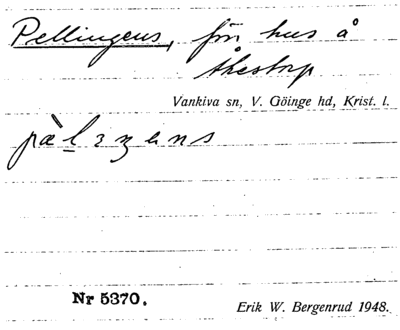 Pellingens, förr hus å
Åkestorp
Vankiva sn, V. Göinge hd, Krist. l.
pὲlɜŋɛns
Nr 5370.
Erik W. Bergenrud 1948.